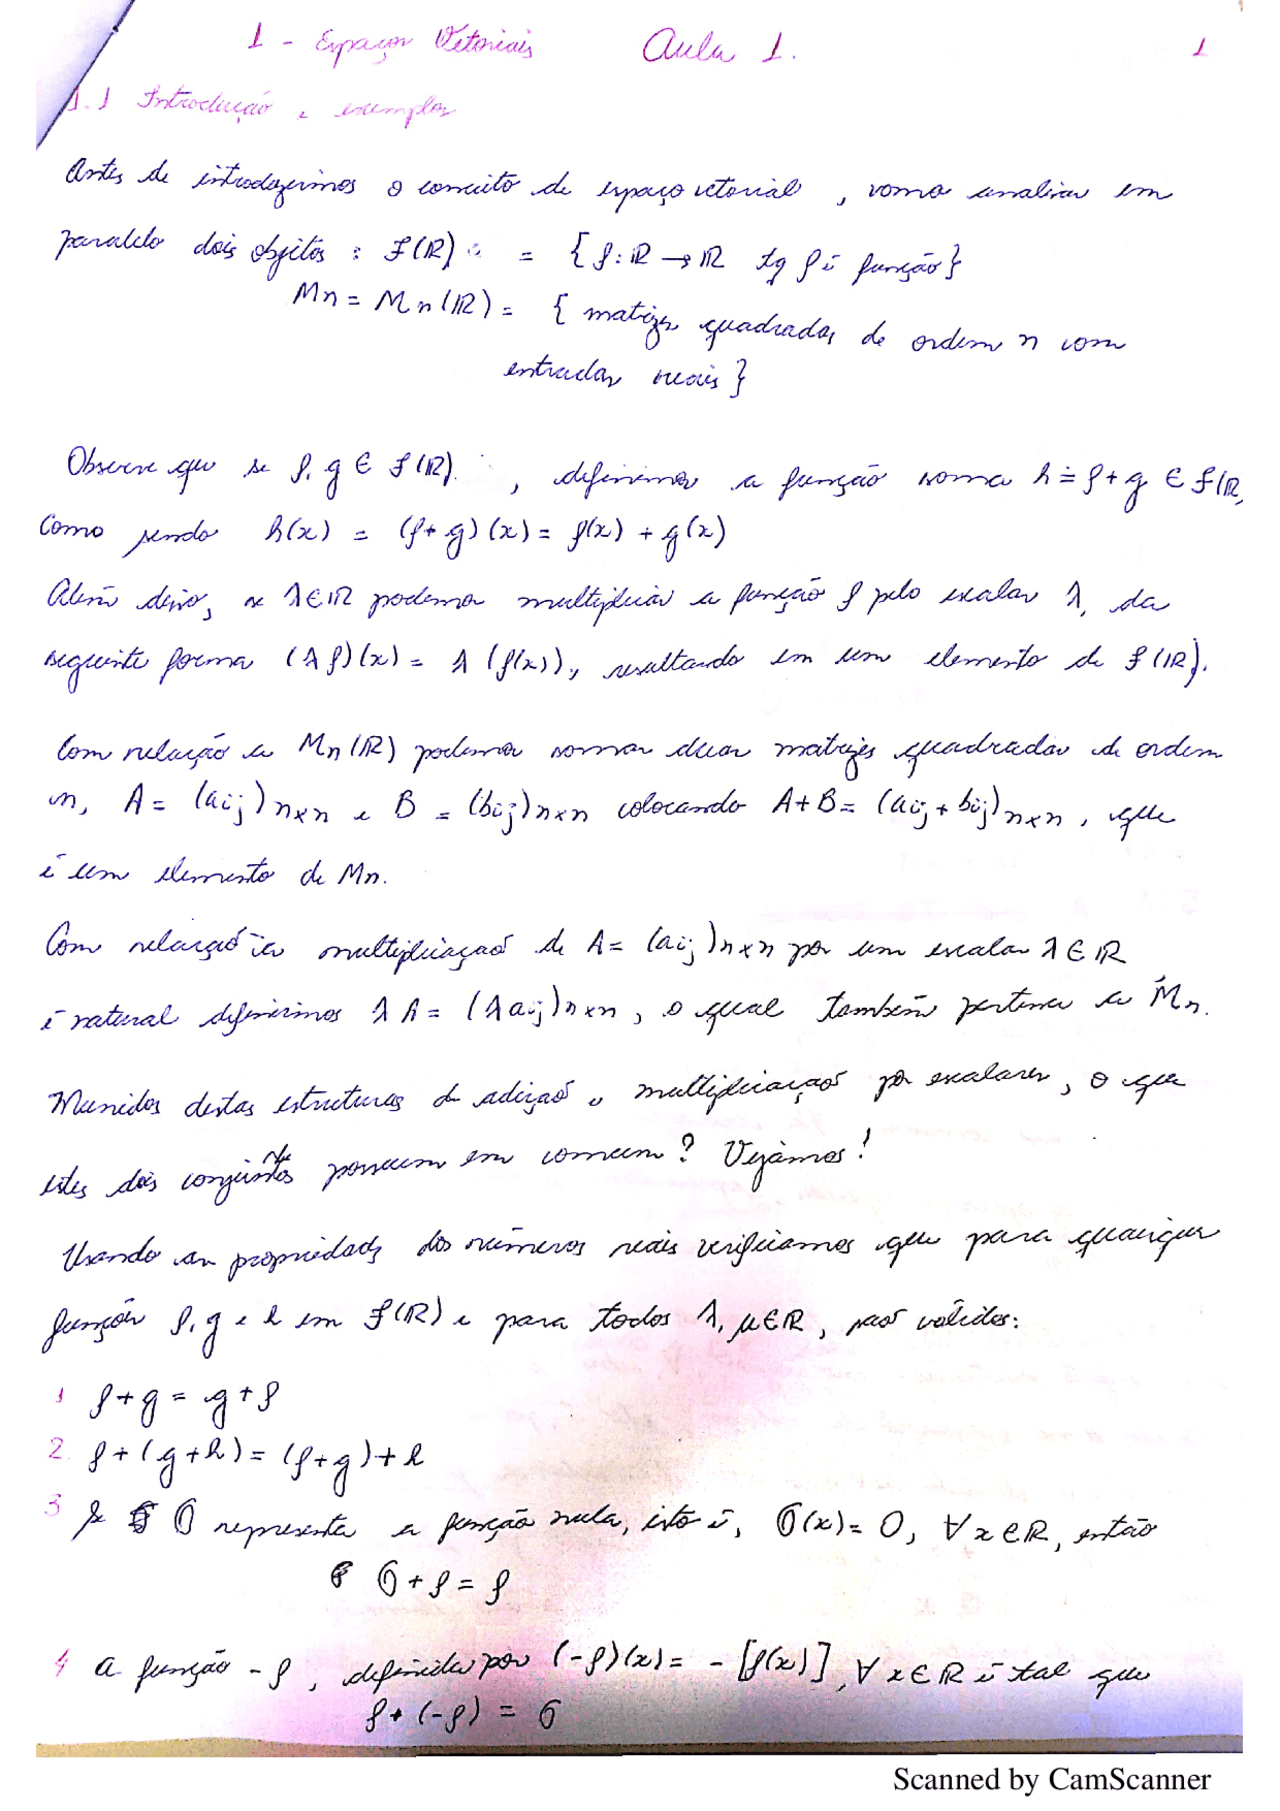 1 - Espaços Vetoriais Aula 1. 1
1.1 Introdução e exemplos
Antes de introduzirmos o conceito de espaço vetorial, vamos analisar em
paralelo dois objetos: F(ℝ) = {f: ℝ → ℝ tq f é função}
Mn = Mn(ℝ) = { matrizes quadradas de ordem n com
entradas reais}
Observe que se f, g ∈ F(ℝ), definimos a função soma h ≐ f + g ∈ F(ℝ,
como sendo h(x) = (f+g)(x) = f(x) + g(x)
Além disso, se λ∈ℝ podemos multiplicar a função f pelo escalar λ, da
seguinte forma (λf)(x) = λ(f(x)), resultando em um elemento de F(ℝ).
Com relação a Mn(ℝ) podemos somar duas matrizes quadradas de ordem
n, A = (aij)n×n e B = (bij)n×n colocando A+B = (aij + bij)n×n, que
é um elemento de Mn.
Com relação à multiplicação de A = (aij)n×n por um escalar λ ∈ ℝ
é natural definirmos λA = (λaij)n×n, o qual também pertence a Mn.
Munidos destas estruturas de adição e multiplicação por escalares, o que
estes dois conjuntos possuem em comum? Vejamos!
Usando as propriedades dos números reais verificamos que para quaisquer
funções f, g e h em F(ℝ) e para todos λ, μ∈ℝ, são válidos:
1 f + g = g + f
2. f + (g + h) = (f + g) + h
3 Se O representa a função nula, isto é, O(x) = 0, ∀ x ∈ ℝ, então
O + f = f
4 A função -f, definida por (-f)(x) = -[f(x)], ∀ x∈ℝ é tal que
f + (-f) = O
Scanned by CamScanner